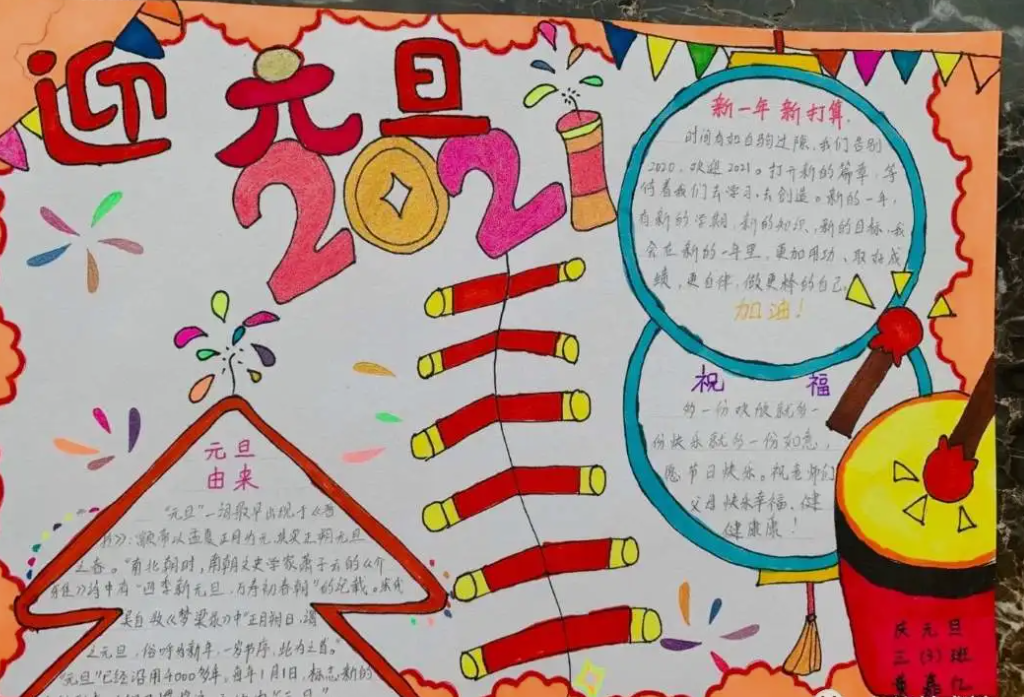 迎元旦
2021
新一年 新打算
时间有如白驹过隙,我们告别
2020,欢迎2021。打开新的篇章,等
待着我们去学习,去创造。新的一年,
有新的学期,新的知识,新的目标,我
会在新的一年里,更加用功、取好成
绩,更自律,做更棒的自己。
加油!
祝福
多一份欢欣就多一
份快乐就多一份如意,
愿节日快乐。祝老师们
父母快乐幸福,健
健康康!
元旦
由来
"元旦"一词最早出现于《晋
书》:颛帝以孟夏正月为元,其实正朔元旦
之春。"南北朝时,南朝文史学家萧子云的《介
雅》诗中有"四季新元旦,万寿初春朝"的记载。宋代
吴自牧《梦粱录》中"正月朔日,谓
之元旦,俗呼为新年,一岁节序,此为之首。"
"元旦"已经沿用4000多年。每年1月1日,标志新的
庆元旦
三(3)班